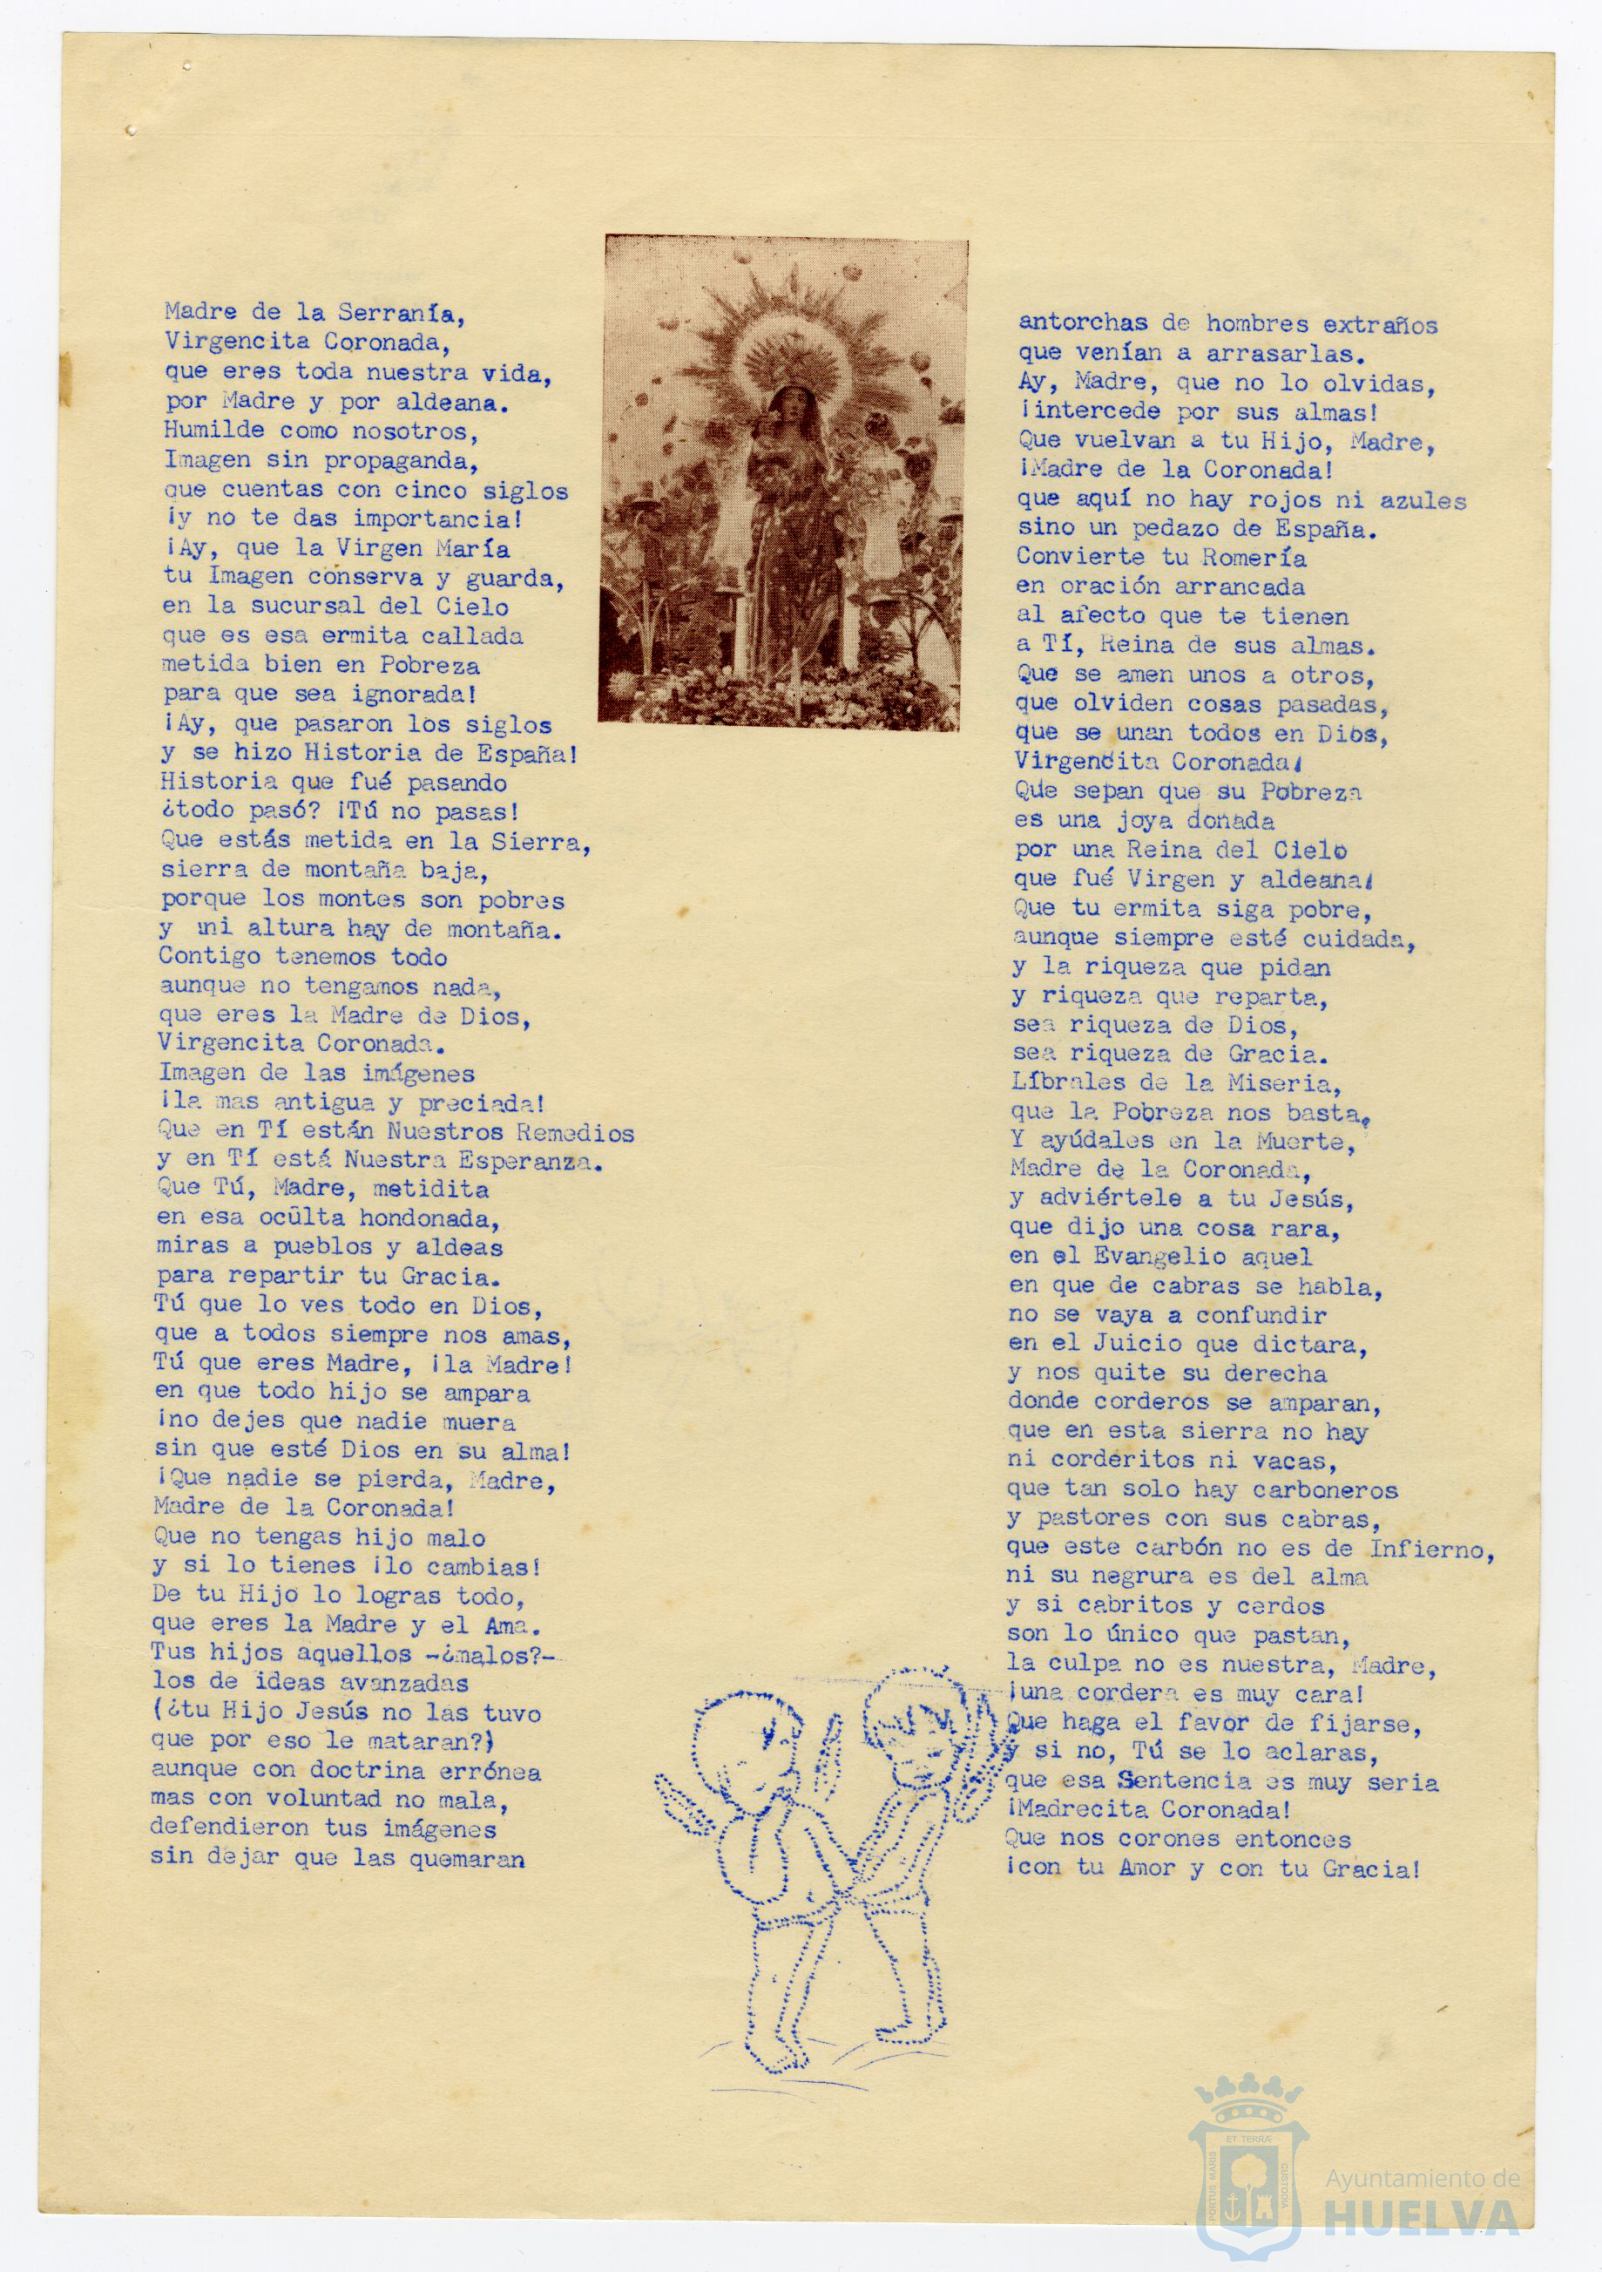 Madre de la Serranía,
Virgencita Coronada,
que eres toda nuestra vida,
por Madre y por aldeana.
Humilde como nosotros,
Imagen sin propaganda,
que cuentas con cinco siglos
¡y no te das importancia!
¡Ay, que la Virgen María
tu Imagen conserva y guarda,
en la sucursal del Cielo
que es esa ermita callada
metida bien en Pobreza
para que sea ignorada!
¡Ay, que pasaron los siglos
y se hizo Historia de España!
Historia que fué pasando
¿todo pasó? ¡Tú no pasas!
Que estás metida en la Sierra,
sierra de montaña baja,
porque los montes son pobres
y ni altura hay de montaña.
Contigo tenemos todo
aunque no tengamos nada,
que eres la Madre de Dios,
Virgencita Coronada.
Imagen de las imágenes
¡la mas antigua y preciada!
Que en Tí están Nuestros Remedios
y en Tí está Nuestra Esperanza.
Que Tú, Madre, metidita
en esa oculta hondonada,
miras a pueblos y aldeas
para repartir tu Gracia.
Tú que lo ves todo en Dios,
que a todos siempre nos amas,
Tú que eres Madre, ¡la Madre!
en que todo hijo se ampara
¡no dejes que nadie muera
sin que esté Dios en su alma!
¡Que nadie se pierda, Madre,
Madre de la Coronada!
Que no tengas hijo malo
y si lo tienes ¡lo cambias!
De tu Hijo lo logras todo,
que eres la Madre y el Ama.
Tus hijos aquellos -¿malos?-
los de ideas avanzadas
(¿tu Hijo Jesús no las tuvo
que por eso le mataran?)
aunque con doctrina errónea
mas con voluntad no mala,
defendieron tus imágenes
sin dejar que las quemaran
antorchas de hombres extraños
que venían a arrasarlas.
Ay, Madre, que no lo olvidas,
¡intercede por sus almas!
Que vuelvan a tu Hijo, Madre,
¡Madre de la Coronada!
que aquí no hay rojos ni azules
sino un pedazo de España.
Convierte tu Romería
en oración arrancada
al afecto que te tienen
a Tí, Reina de sus almas.
Que se amen unos a otros,
que olviden cosas pasadas,
que se unan todos en Dios,
Virgencita Coronada!
Que sepan que su Pobreza
es una joya donada
por una Reina del Cielo
que fué Virgen y aldeana!
Que tu ermita siga pobre,
aunque siempre esté cuidada,
y la riqueza que pidan
y riqueza que reparta,
sea riqueza de Dios,
sea riqueza de Gracia.
Líbrales de la Miseria,
que la Pobreza nos basta,
Y ayúdales en la Muerte,
Madre de la Coronada,
y adviértele a tu Jesús,
que dijo una cosa rara,
en el Evangelio aquel
en que de cabras se habla,
no se vaya a confundir
en el Juicio que dictara,
y nos quite su derecha
donde corderos se amparan,
que en esta sierra no hay
ni corderitos ni vacas,
que tan solo hay carboneros
y pastores con sus cabras,
que este carbón no es de Infierno,
ni su negrura es del alma
y si cabritos y cerdos
son lo único que pastan,
la culpa no es nuestra, Madre,
¡una cordera es muy cara!
Que haga el favor de fijarse,
y si no, Tú se lo aclaras,
que esa Sentencia es muy seria
¡Madrecita Coronada!
Que nos corones entonces
¡con tu Amor y con tu Gracia!
ET TERRÆ
PORTUS MARIS
CUSTODIA
Ayuntamiento de
HUELVA